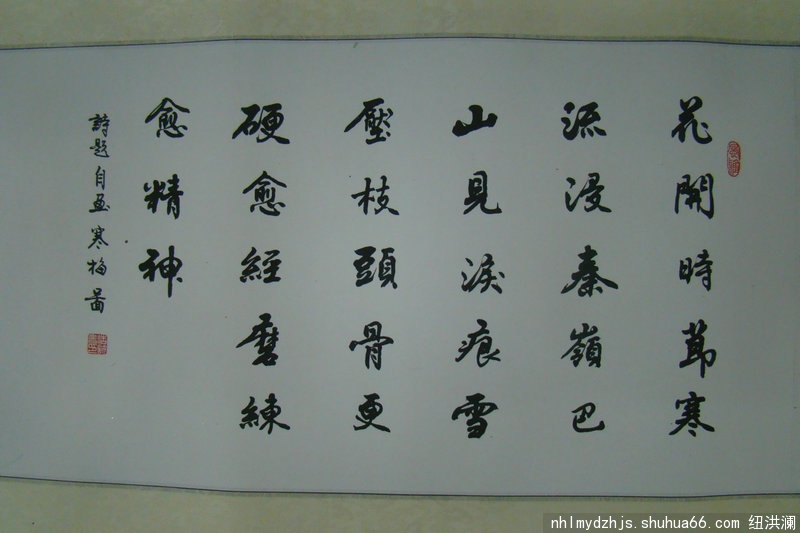 花開時節寒
流浸秦嶺巴
山見淚痕雪
壓枝頭骨更
硬愈經磨練
愈精神
詩題自画寒梅啚
nhlmydzhjs.shuhua66.com 纽洪澜